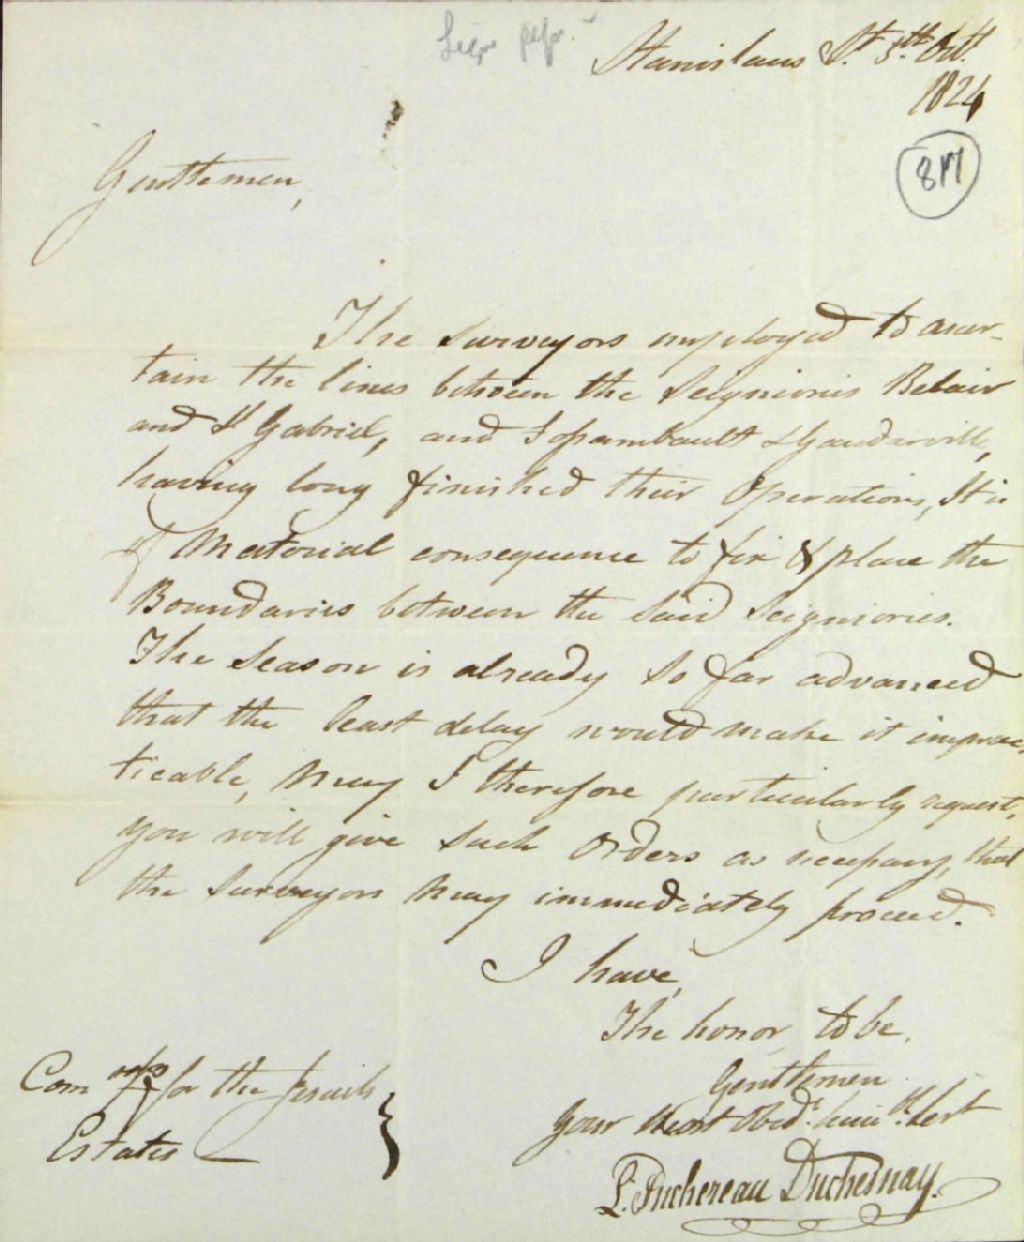 Stanislaus St. 5th Octr.
1824
817
Gentlemen,
The Surveyors employed to ascer-
tain the lines between the Seigniories Belair
and St Gabriel, and Fossambault & Gaudarville,
having long finished their Operations, It is
of Material consequence to fix & place the
Boundaries between the said Seigniories.
The Season is already so far advanced
that the least delay would make it imprac-
ticable, May I therefore particularly request,
you will give such Orders as necessary, that
the Surveyors May immediately proceed.
I have,
The honor to be,
Gentlemen
Your Most Obedt. humble. Sert
Comrs for the Jesuits
Estates
Juchereau Duchesnay.